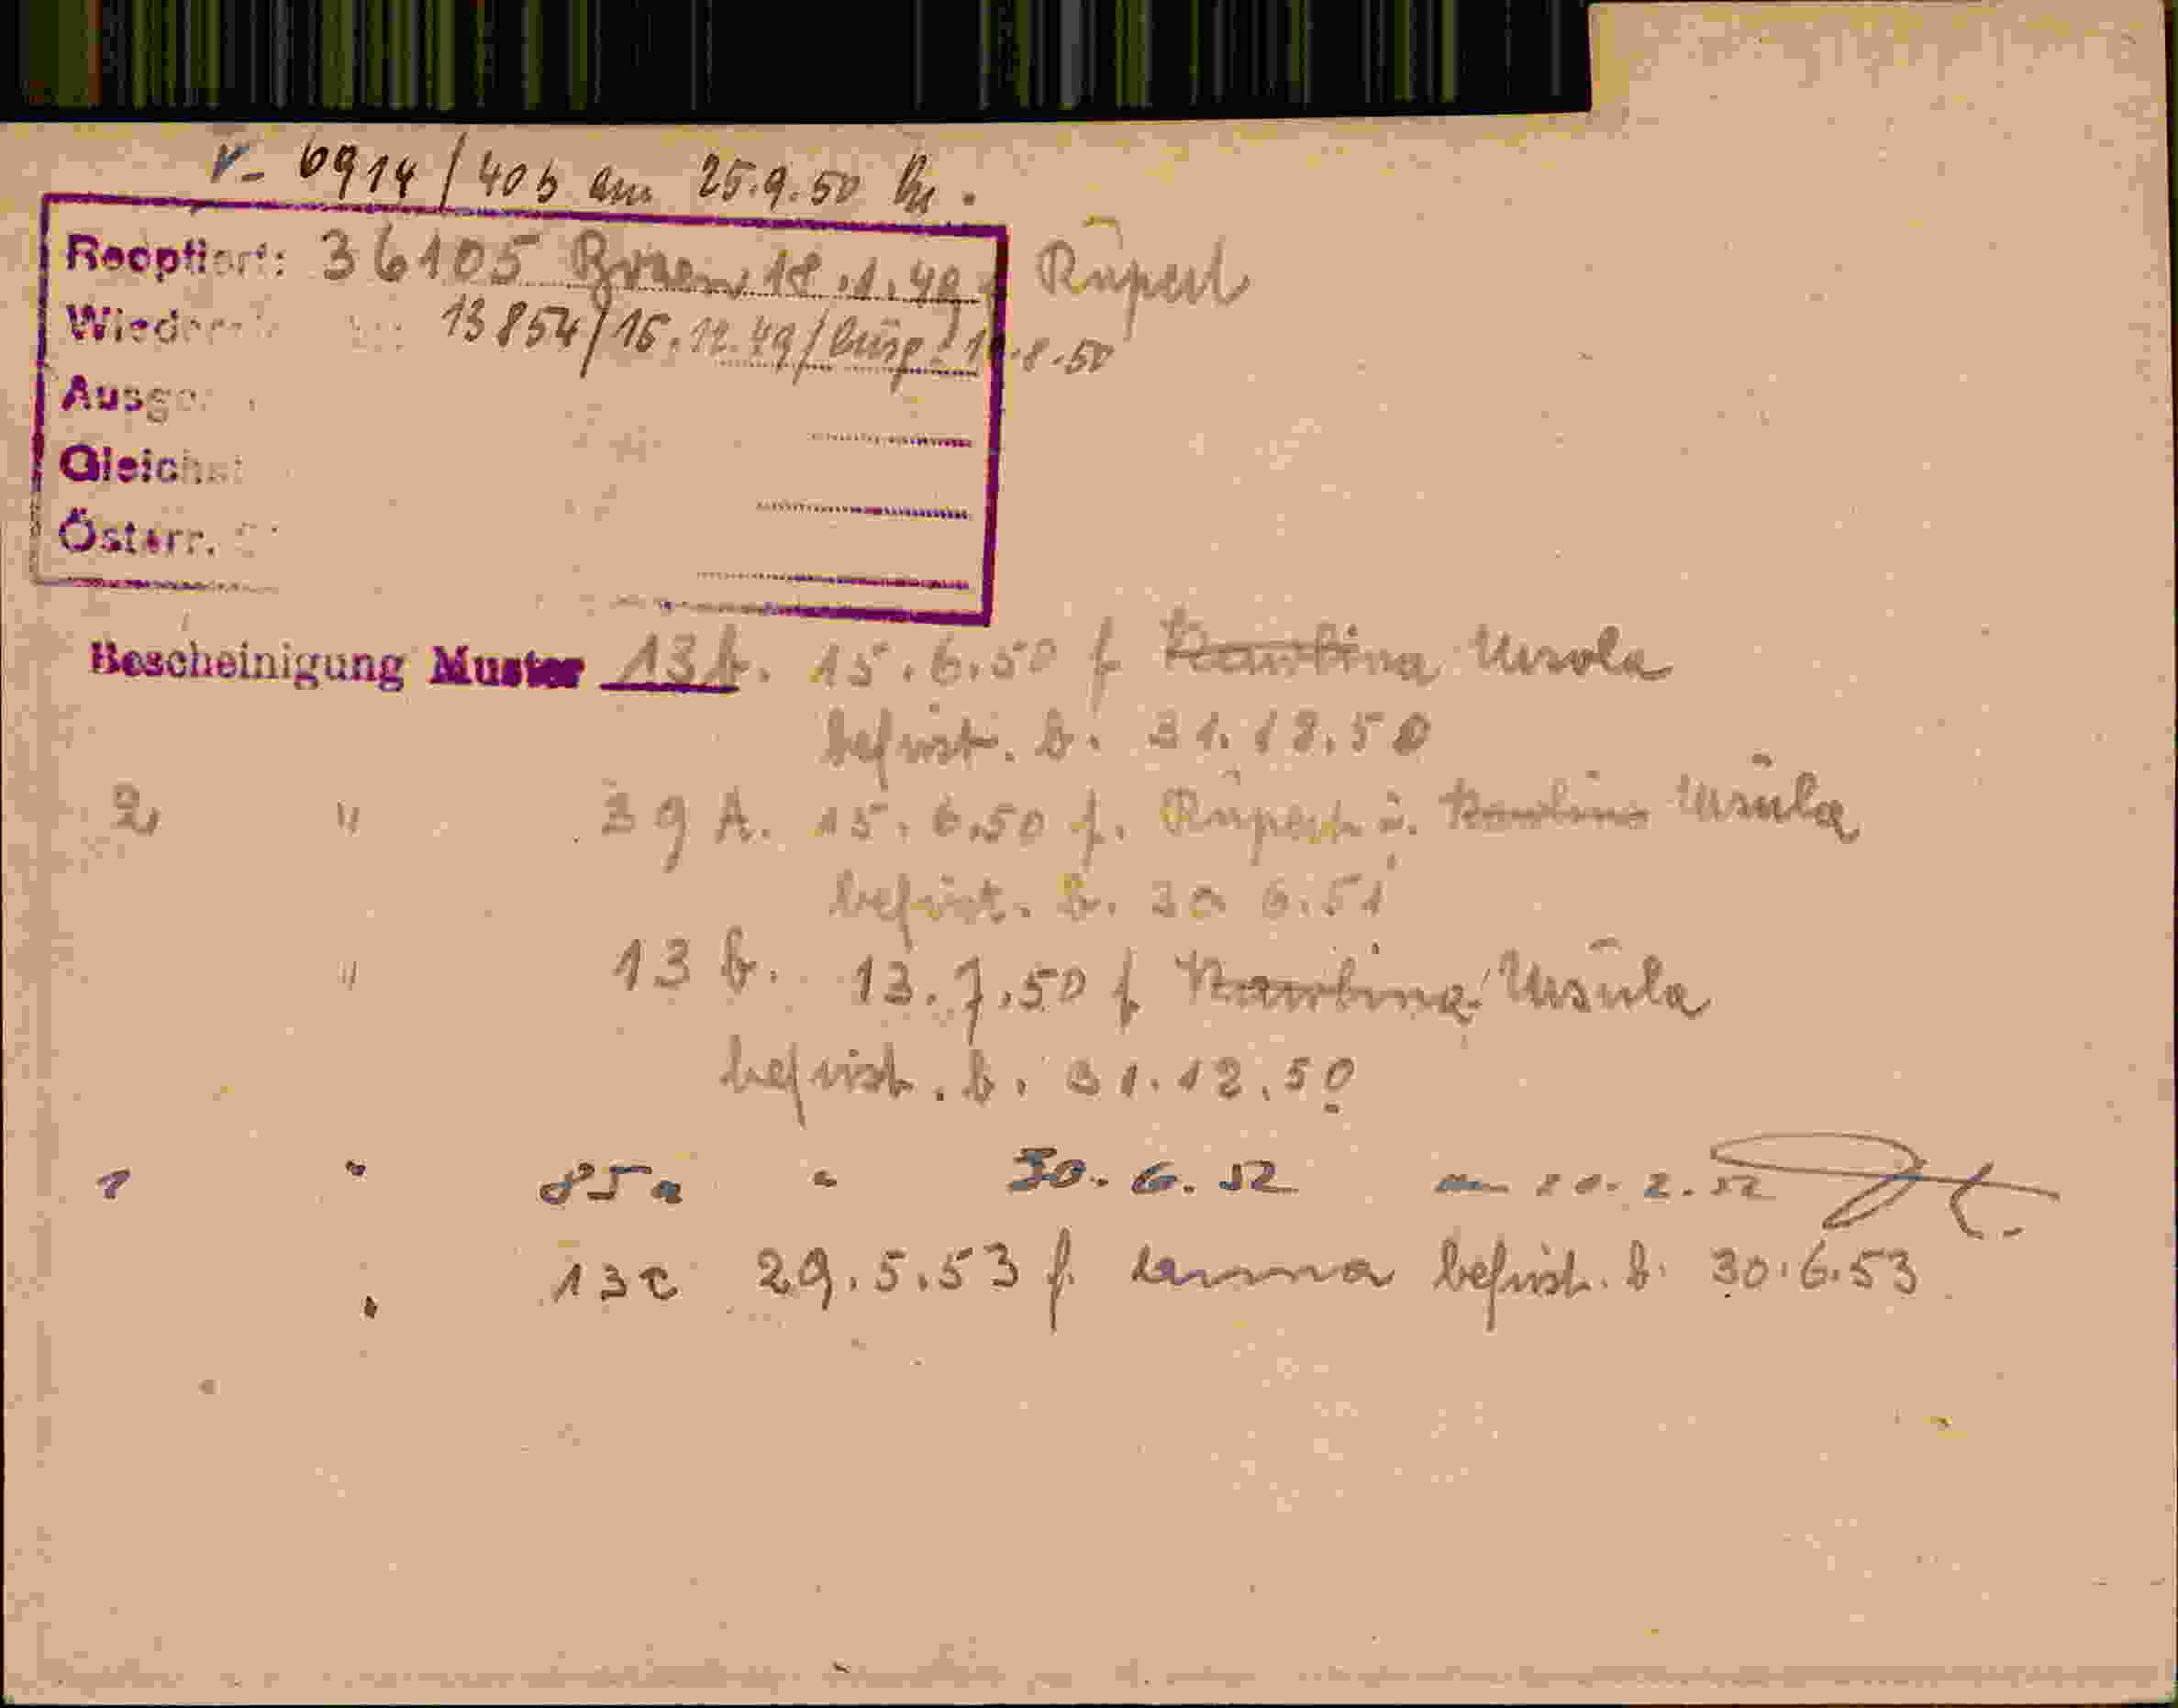 V- 6914/40b am 25.9.50
Reoptiert: 36105 Bozen 18.1.49 f Rupert
13854/15.12.49/
Österr.
Bescheinigung Muster 13b. 15.6.50 f Ursola
befrist. b. 31.12.50
2 " 39 A. 15.6.50 f. Rupert u. Ursula
befrist. b. 30 6.51
" 13 b. 13.7.50 f Ursula
befrist. b. 31.12.50
1 " 85a " 30.6.52 am 20.2.52
" 13c 29.5.53 f. befrist. b. 30.6.53